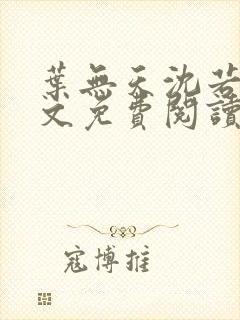 葉無天沈若
文免費閱讀
寇博推